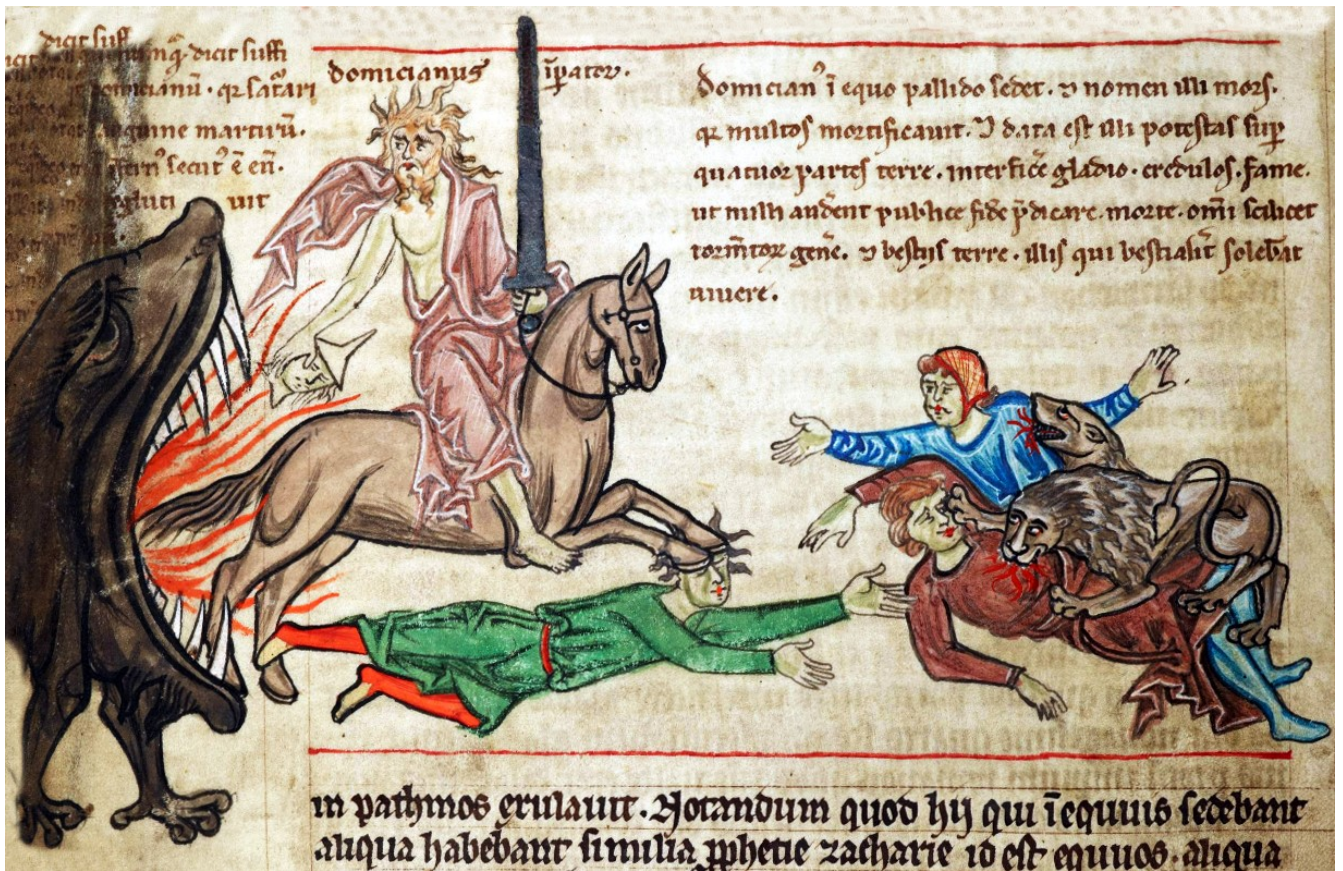 dicit suff
dicit suffi
domicianū · qr saťari
sanguine martirū.
secut᾽ ē eū.
egluti uit
domicianus īpator.
domician᾽ ī equo pallido sedet. ⁊ nomen illi mors.
qr multos mortificauit. ⁊ data est illi potestas sup
quatuor partes terre. interficẽ gladio. credulos. fame.
ut nulli audẽnt publice fidẽ p̄dicare. morte. omī scilicet
tormẽtoꝝ genẽ. ⁊ bestijs terre. illis qui bestialiť solebāt
uiuere.
in pathmos exulauit. Notandum quod hij qui ī equis sedebant
aliqua habebant similia ꝓphetie zacharie id est equos. aliqua